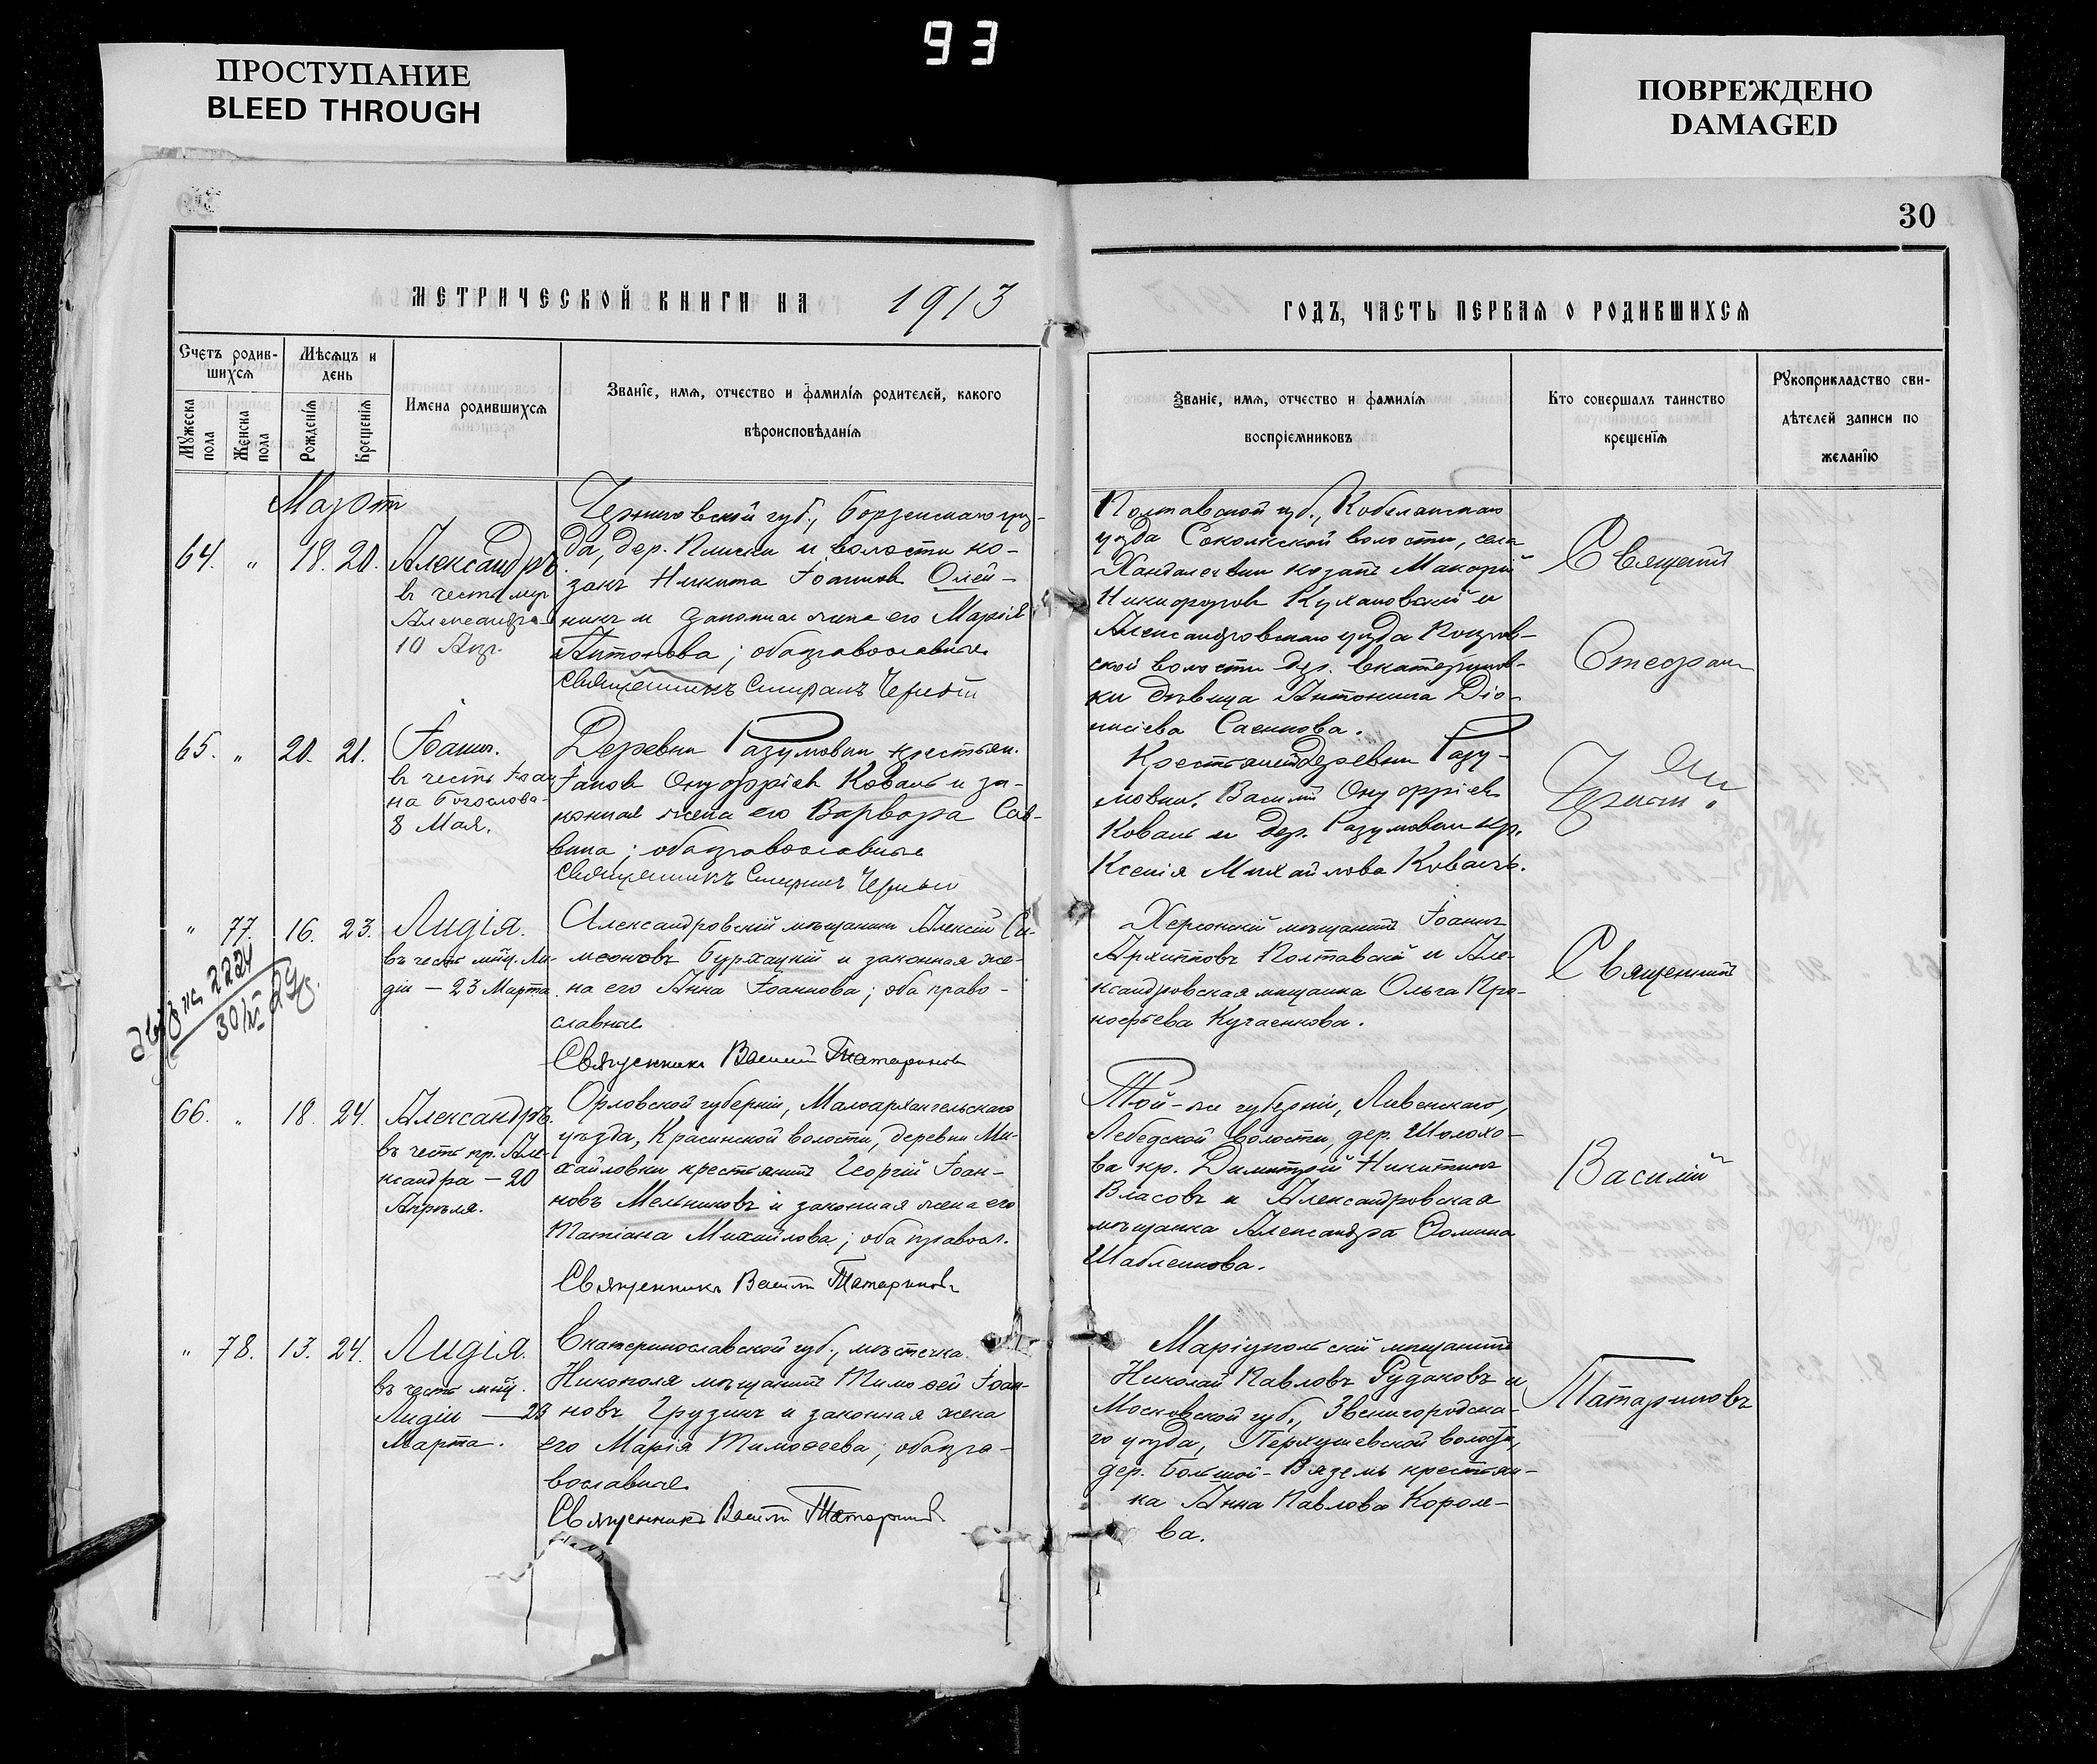 93
ПРОСТУПАНИЕ
BLEED THROUGH
ПОВРЕЖДЕНО
DAMAGED
30
МЕТРИЧЕСКОЙ КНИГИ НА 1913
ГОДЪ, ЧАСТЬ ПЕРВАЯ О РОДИВШИХСЯ
Счетъ родив-
шихся
Мѣсяцъ и
день
Мужеска
пола
Женска
пола
Рожденія
Крещенія
Имена родившихся
Званіе, имя, отчество и фамилія родителей, какого
вѣроисповѣданія
Званіе, имя, отчество и фамилія
воспріемниковъ
Кто совершалъ таинство
крещенія
Рукоприкладство сви-
дѣтелей записи по
желанію
Мартъ
64. " 18. 20. Александръ
въ честь муч.
Александра
10 Апр.
Черниговской губ., Борзенскаго уѣз-
да, дер. Плиски и волости ко-
закъ Никита Іоанновъ Олей-
никъ и законная жена его Марія
Антонова; оба православные
Священникъ Стефанъ Черный
Полтавской губ., Кобелякскаго
уѣзда Соколкской волости, села
козакъ Макарій
Никифоровъ Кухановский и
Александровскаго уѣзда Покров-
ской волости дер. Екатеринов-
ки дѣвица Антонина Діо-
нисіева Саенкова.
Священникъ
Стефанъ
Черный
65. " 20. 21. Іоаннъ.
въ честь Іоан-
на Богослова
8 Мая.
Деревни Разумовки крестьян.
Іаковъ Онуфріевъ Коваль и за-
конная жена его Варвара Сав-
вина; оба православные
Священникъ Стефанъ Черный
Крестьянинъ деревни Разу-
мовки Василій Онуфріевъ
Коваль и дер. Разумовки кр.
Ксенія Михайлова Коваль.
" 77. 16. 23. Лидія.
въ честь мчц. Ли-
діи — 23 Марта
2224
Александровскій мѣщанинъ Алексій Си-
меоновъ Бурхацкій и законная же-
на его Анна Іоаннова; оба право-
славные
Священникъ Василій Татариновъ
Херсонскій мѣщанинъ Іоаннъ
Архипповъ Полтавскій и Але-
ксандровская мѣщанка Ольга Про-
кофьева Кучаенкова.
Священникъ
66. " 18. 24. Александръ.
въ честь пр. Але-
ксандра — 20
Апрѣля.
Орловской губерніи, Малоархангельскаго
уѣзда, Красинской волости, деревни Ми-
хайловки крестьянинъ Георгій Іоан-
новъ Мельниковъ и законная жена его
Татіана Михайлова; оба правосл.
Священникъ Василій Татариновъ
Той-же губерніи, Ливенскаго,
Лебедской волости, дер. Шолохо-
ва кр. Димитрій Никитинъ
Власовъ и Александровская
мѣщанка Александра Ѳомина
Шабленкова.
Василій
" 78. 13. 24. Лидія.
въ честь мчц.
Лидіи — 23
Марта.
Екатеринославской губ., мѣстечка
Никополя мѣщанинъ Тимоѳей Іоан-
новъ Грузинъ и законная жена
его Марія Тимоѳеева; оба пра-
вославные
Священникъ Василій Татариновъ
Маріупольскій мѣщанинъ
Николай Павловъ Рудаковъ и
Московской губ., Звенигородска-
го уѣзда, Перхушевской волости,
дер. Большой-Вяземъ крестьян-
ка Анна Павлова Короле-
ва.
Татариновъ